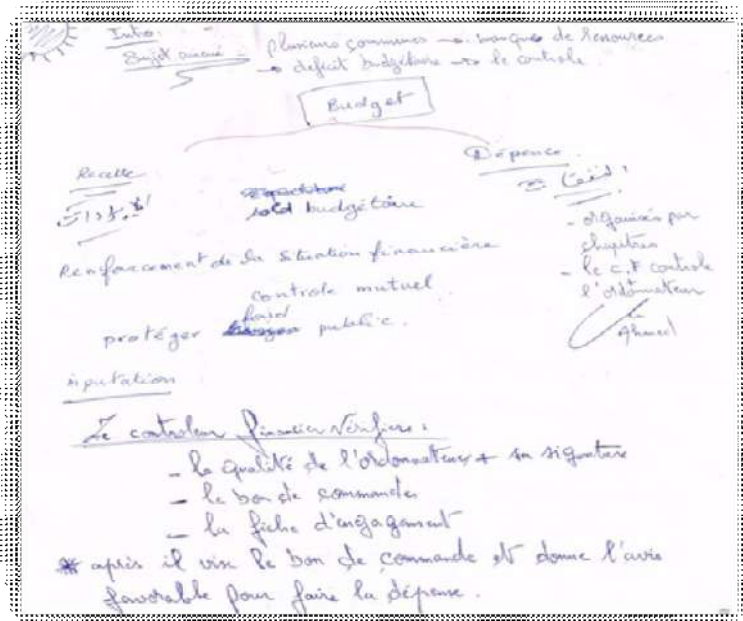 Intro:
Sujet amené : plusieurs communes → manque de ressources
→ deficit budgétaire → le controle.
Budget
Recette
Dépence
النفقات
الإيرادات
sold budgétaire
- organisés par
chapitres
- le C.F controle
l'ordonnateur
Renforcement de la situation financière
controle mutuel
fond
protéger public.
Ahmed
inputation
Le controleur financier Vérifiers :
- la qualité de l'ordonnateur + sa signature
- le bon de commandes
- la fiche d'engagament
* après il vise le bon de commande et donne l'avis
favorable pour faire la dépense.